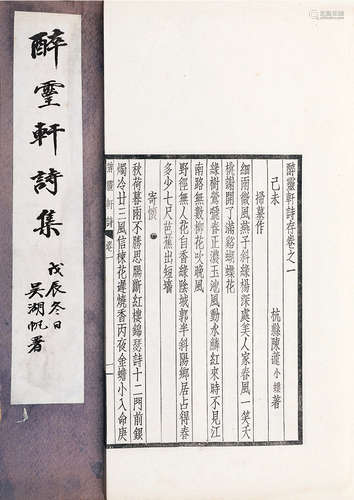 醉靈軒詩集
戊辰冬日
吳湖帆署
醉靈軒詩存卷之一
己未 杭縣陳蘧小蝶著
掃墓作
細雨微風燕子斜綠楊深處美人家春風一笑夭
桃謝開了滿谿蝴蝶花
綠樹鶯聲春正濃玉池風動水鱗紅來時不見江
南路無數柳花吹晚風
野徑無人花自香綠陰城郭半斜陽鄉居占得春
多少七尺芭蕉出短墻
寄懷
秋荷暮雨不勝思腸斷紅樓錦瑟詩十二門前銀
燭冷廿三風信楝花遲燒香丙夜金蟾小入命庚
醉靈軒詩 卷一